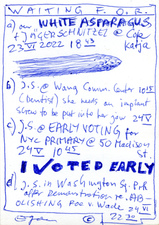 WAITING F.O.R.
a) our WHITE ASPARAGUS
+ JÄGERSCHNITZEL @ Cafe
23 VI 2022 18 Katja
b) J.S. @ Wang Commun. Center 10 15
(Dentist) she needs an implant
screw to be put into her jaw 24 V
c) J.S. @ EARLY VOTING for
NYC PRIMARY @ 50 Madison
24 VI 10 45 St.
I VOTED EARLY
d) J.S. in Washington Sq. Prk
after demonstration re. AB-
OLISHING Roe v. Wade 24 VI
22 30